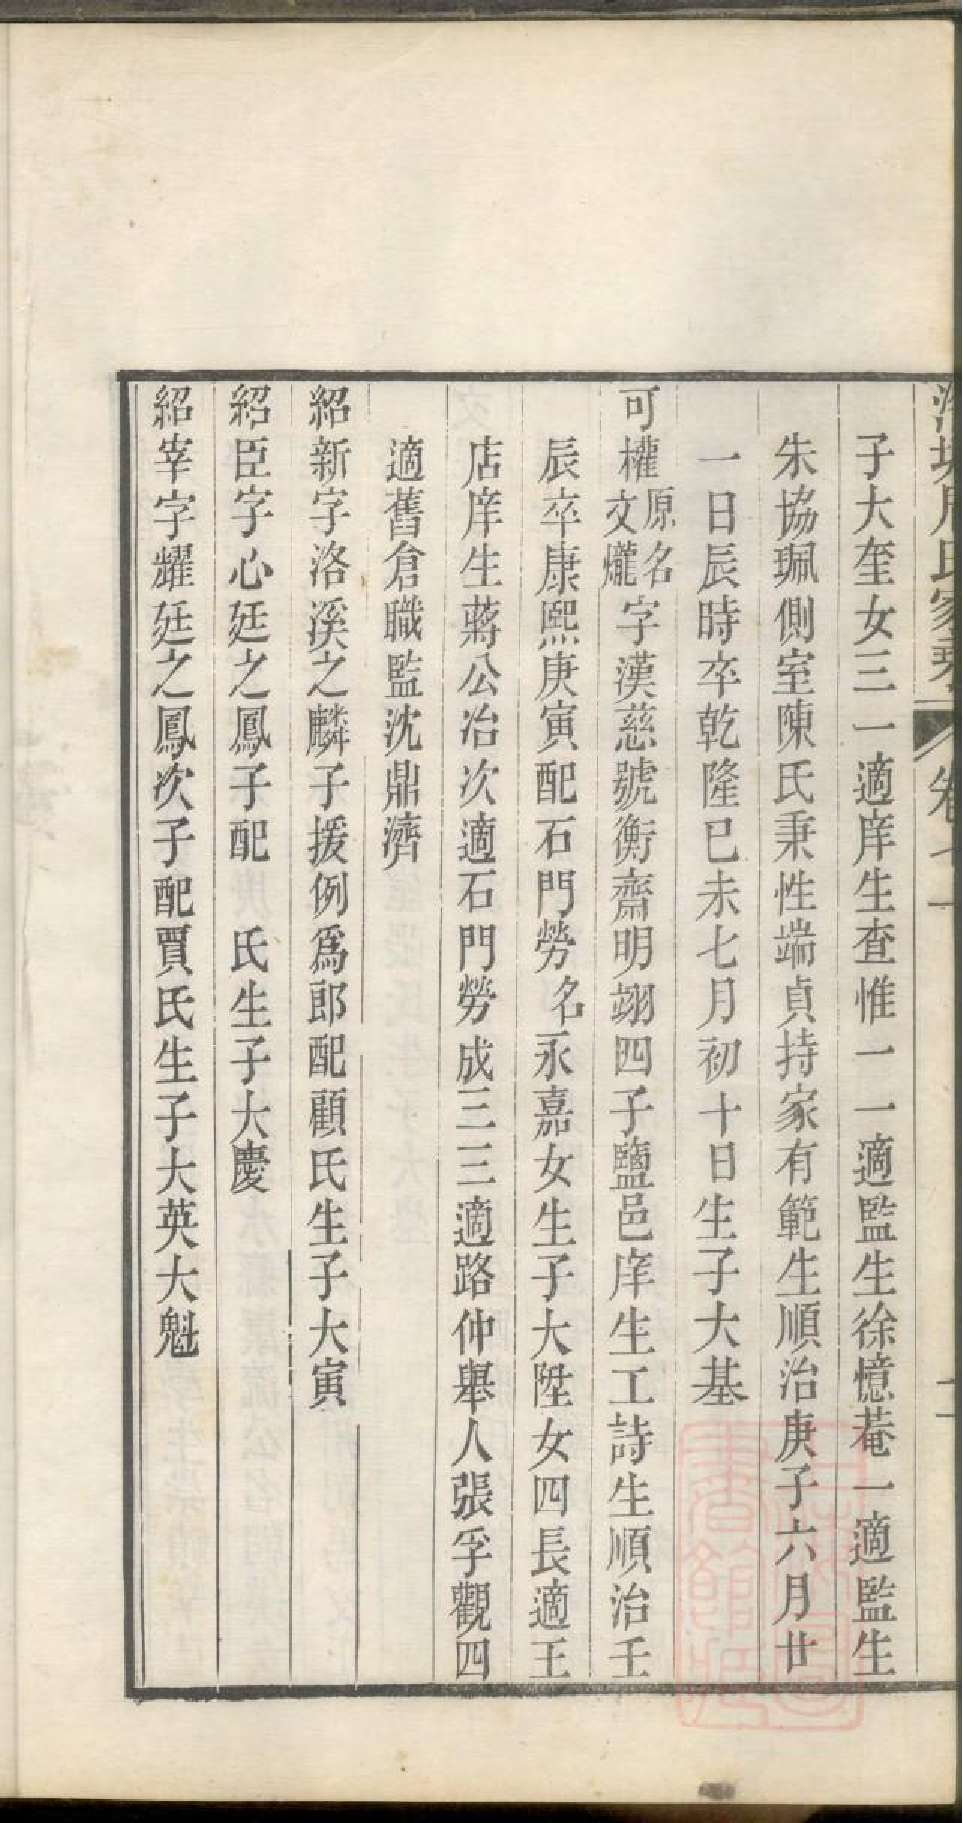 周氏家乘 卷十一
子大奎女三一適庠生查惟一一適監生徐憶菴一適監生
朱協珮側室陳氏秉性端貞持家有範生順治庚子六月廿
一日辰時卒乾隆己未七月初十日生子大基
可權原名文爖字漢慈號衡齋明翊四子鹽邑庠生工詩生順治壬
辰卒康熙庚寅配石門勞名永嘉女生子大陞女四長適王
店庠生蔣公冶次適石門勞成三三適路仲舉人張孚觀四
適舊倉職監沈鼎濟
紹新字洛溪之麟子援例爲郎配顧氏生子大寅
紹臣字心廷之鳳子配 氏生子大慶
紹宰字耀廷之鳳次子配賈氏生子大英大魁